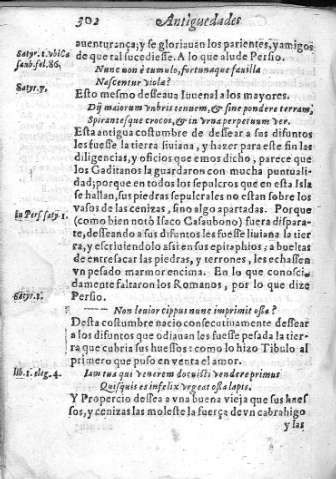 302 Antiguedades
auenturança; y se gloriauan los parientes, y amigos
de que tal sucediesse. A lo que alude Persio.
Satyr. 1. vbi Ca
saub. fol. 86.
Nunc non è tumulo, fortunaque fauilla
Nascentur violæ?
Satyr. 7.
Esto mesmo desseaua Iuuenal a los mayores.
Dij maiorum vmbris tenuem, & sine pondere terram,
Spirantesque crocos, & in vrna perpetuum ver.
Esta antigua costumbre de dessear a sus difuntos
les fuesse la tierra liuiana, y hazer para este fin las
diligencias, y oficios que emos dicho, parece que
los Gaditanos la guardaron con mucha puntuali-
dad; porque en todos los sepulcros que en esta Isla
se hallan, sus piedras sepulcrales no estan sobre los
vasos de las cenizas, sino algo apartadas. Porque
in Pers. saty. 1.
(como bien notò Isaco Casaubono) fuera dispara-
te, desseando a sus difuntos les fuesse liuiana la tie-
rra, y escriuiendolo assi en sus epitaphios; a bueltas
de entresacar las piedras, y terrones, les echassen
vn pesado marmor encima. En lo que conosci-
damente faltaron los Romanos, por lo que dize
Satyr. 1.
Persio.
—— Non leuior cippus nunc imprimit ossa?
Desta costumbre nacio consecutiuamente dessear
a los difuntos que odiauan les fuesse pesada la tier-
ra que cubria sus huessos: como lo hizo Tibulo al
primero que puso en venta el amor.
lib. 1. eleg. 4.
Iam tua qui venerem docuisti vendere primus
Quisquis es infelix vrgeat ossa lapis.
Y Propercio dessea a vna buena vieja que sus hues
sos, y cenizas las moleste la fuerça de vn cabrahigo
y las